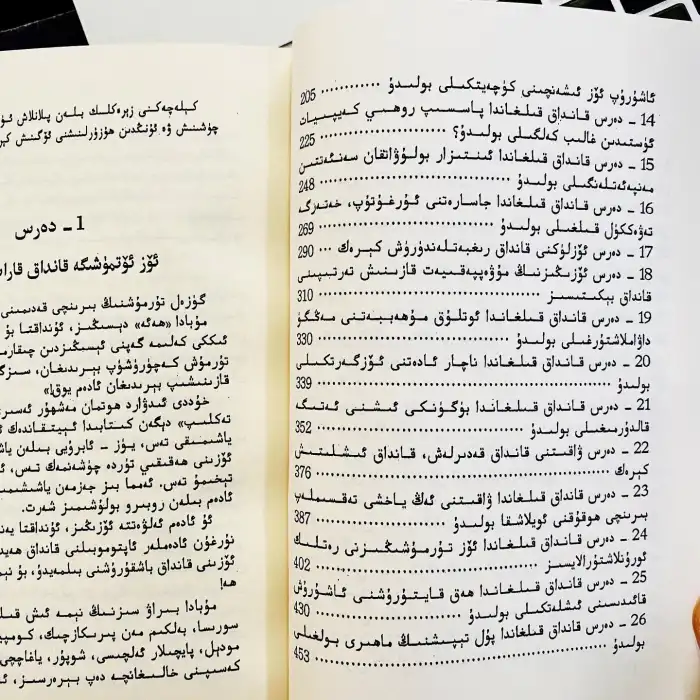 ئاشۇرۇپ ئۆز ئىشەنچىنى كۈچەيتكىلى بولىدۇ ············ 205
14 ـ دەرس قانداق قىلغاندا پاسسىپ روھىي كەيپىيات
ئۈستىدىن غالىب كەلگىلى بولىدۇ؟ ························ 225
15 ـ دەرس قانداق قىلغاندا ئىنتىزار بولۇۋاتقان سەنئەتتىن
مەنپەئەتلەنگىلى بولىدۇ ···································· 248
16 ـ دەرس قانداق قىلغاندا جاسارەتنى ئۇرغۇتۇپ، خەتەرگە
تەۋەككۈل قىلغىلى بولىدۇ ································ 269
17 ـ دەرس ئۆزلۈكنى قانداق رىغبەتلەندۈرۈش كېرەك ··· 290
18 ـ دەرس ئۆزىڭىزنىڭ مۇۋەپپەقىيەت قازىنىش تەرتىپىنى
قانداق بېكىتىسىز ············································ 310
19 ـ دەرس قانداق قىلغاندا ئوتلۇق مۇھەببەتنى مەڭگۈ
داۋاملاشتۇرغىلى بولىدۇ ································ 330
20 ـ دەرس قانداق قىلغاندا ناچار ئادەتنى ئۆزگەرتكىلى
بولىدۇ ······················································ 339
21 ـ دەرس قانداق قىلغاندا بۈگۈنكى ئىشنى ئەتىگە
قالدۇرمىغىلى بولىدۇ ···································· 352
22 ـ دەرس ۋاقىتنى قانداق قەدىرلەش، قانداق ئىشلىتىش
كېرەك ······················································ 376
23 ـ دەرس قانداق قىلغاندا ۋاقىتنى ئەڭ ياخشى تەقسىملەپ
بىرىنچى ھوقۇقنى ئويلاشقا بولىدۇ ···················· 387
24 ـ دەرس قانداق قىلغاندا ئۆز تۇرمۇشىڭىزنى رەتلىك
ئورۇنلاشتۇرالايسىز ······································ 402
25 ـ دەرس قانداق قىلغاندا ھەق قايتۇرۇشنى ئاشۇرۇش
قائىدىسىنى ئىشلەتكىلى بولىدۇ ························ 430
26 ـ دەرس قانداق قىلغاندا پۇل تېپىشنىڭ ماھىرى بولغىلى
بولىدۇ ······················································ 453
كېلەچەكنى زېرەكلىك بىلەن پىلانلاش
چۈشىنىش ۋە ئۇنىڭدىن ھۇزۇرلىنىشنى ئۆگىنىش
1 ـ دەرس
ئۆز ئۆتمۈشىگە قانداق
گۈزەل تۇرمۇشنىڭ بىرىنچى قەدىمىنى
مۇبادا «ھەئە» دېسىڭىز، ئۇنداقتا بۇ
ئىككى كەلىمە گەپنى ئېسىڭىزدىن
تۇرمۇش كەچۈرۈشۈپ بېرىدىغان،
قازىنىشىپ بېرىدىغان ئادەم يوق!»
خۇددى ئىدۋارد ھوتمان مەشھۇر
تەكلىپ» دېگەن كىتابىدا ئېيتقاندەك
ياشىمىقى تەس، يۈز ـ ئابرۇيى بىلەن
ئۆزىنى ھەقىقىي تۈردە چۈشەنمەك تەس،
تېخىمۇ تەس. ئەمما بىز جەزمەن
ئادەم بىلەن روبىرو بولۇشىمىز شەرت.
ئۇ ئادەم ئەلۋەتتە ئۆزىڭىز، ئۇنداقتا
نۇرغۇن ئادەملەر ئاپتوموبىلنى قانداق
ئۆزىنى قانداق باشقۇرۇشنى بىلمەيدۇ، بۇ
ھە!
مۇبادا بىراۋ سىزنىڭ نېمە ئىش
سورىسا، بەلكىم مەن پىرىكازچىك،
مودېل، پايچىلار ئەلچىسى، شوپۇر،
كەسىپنى خالىغانچە دەپ بېرەرسىز،